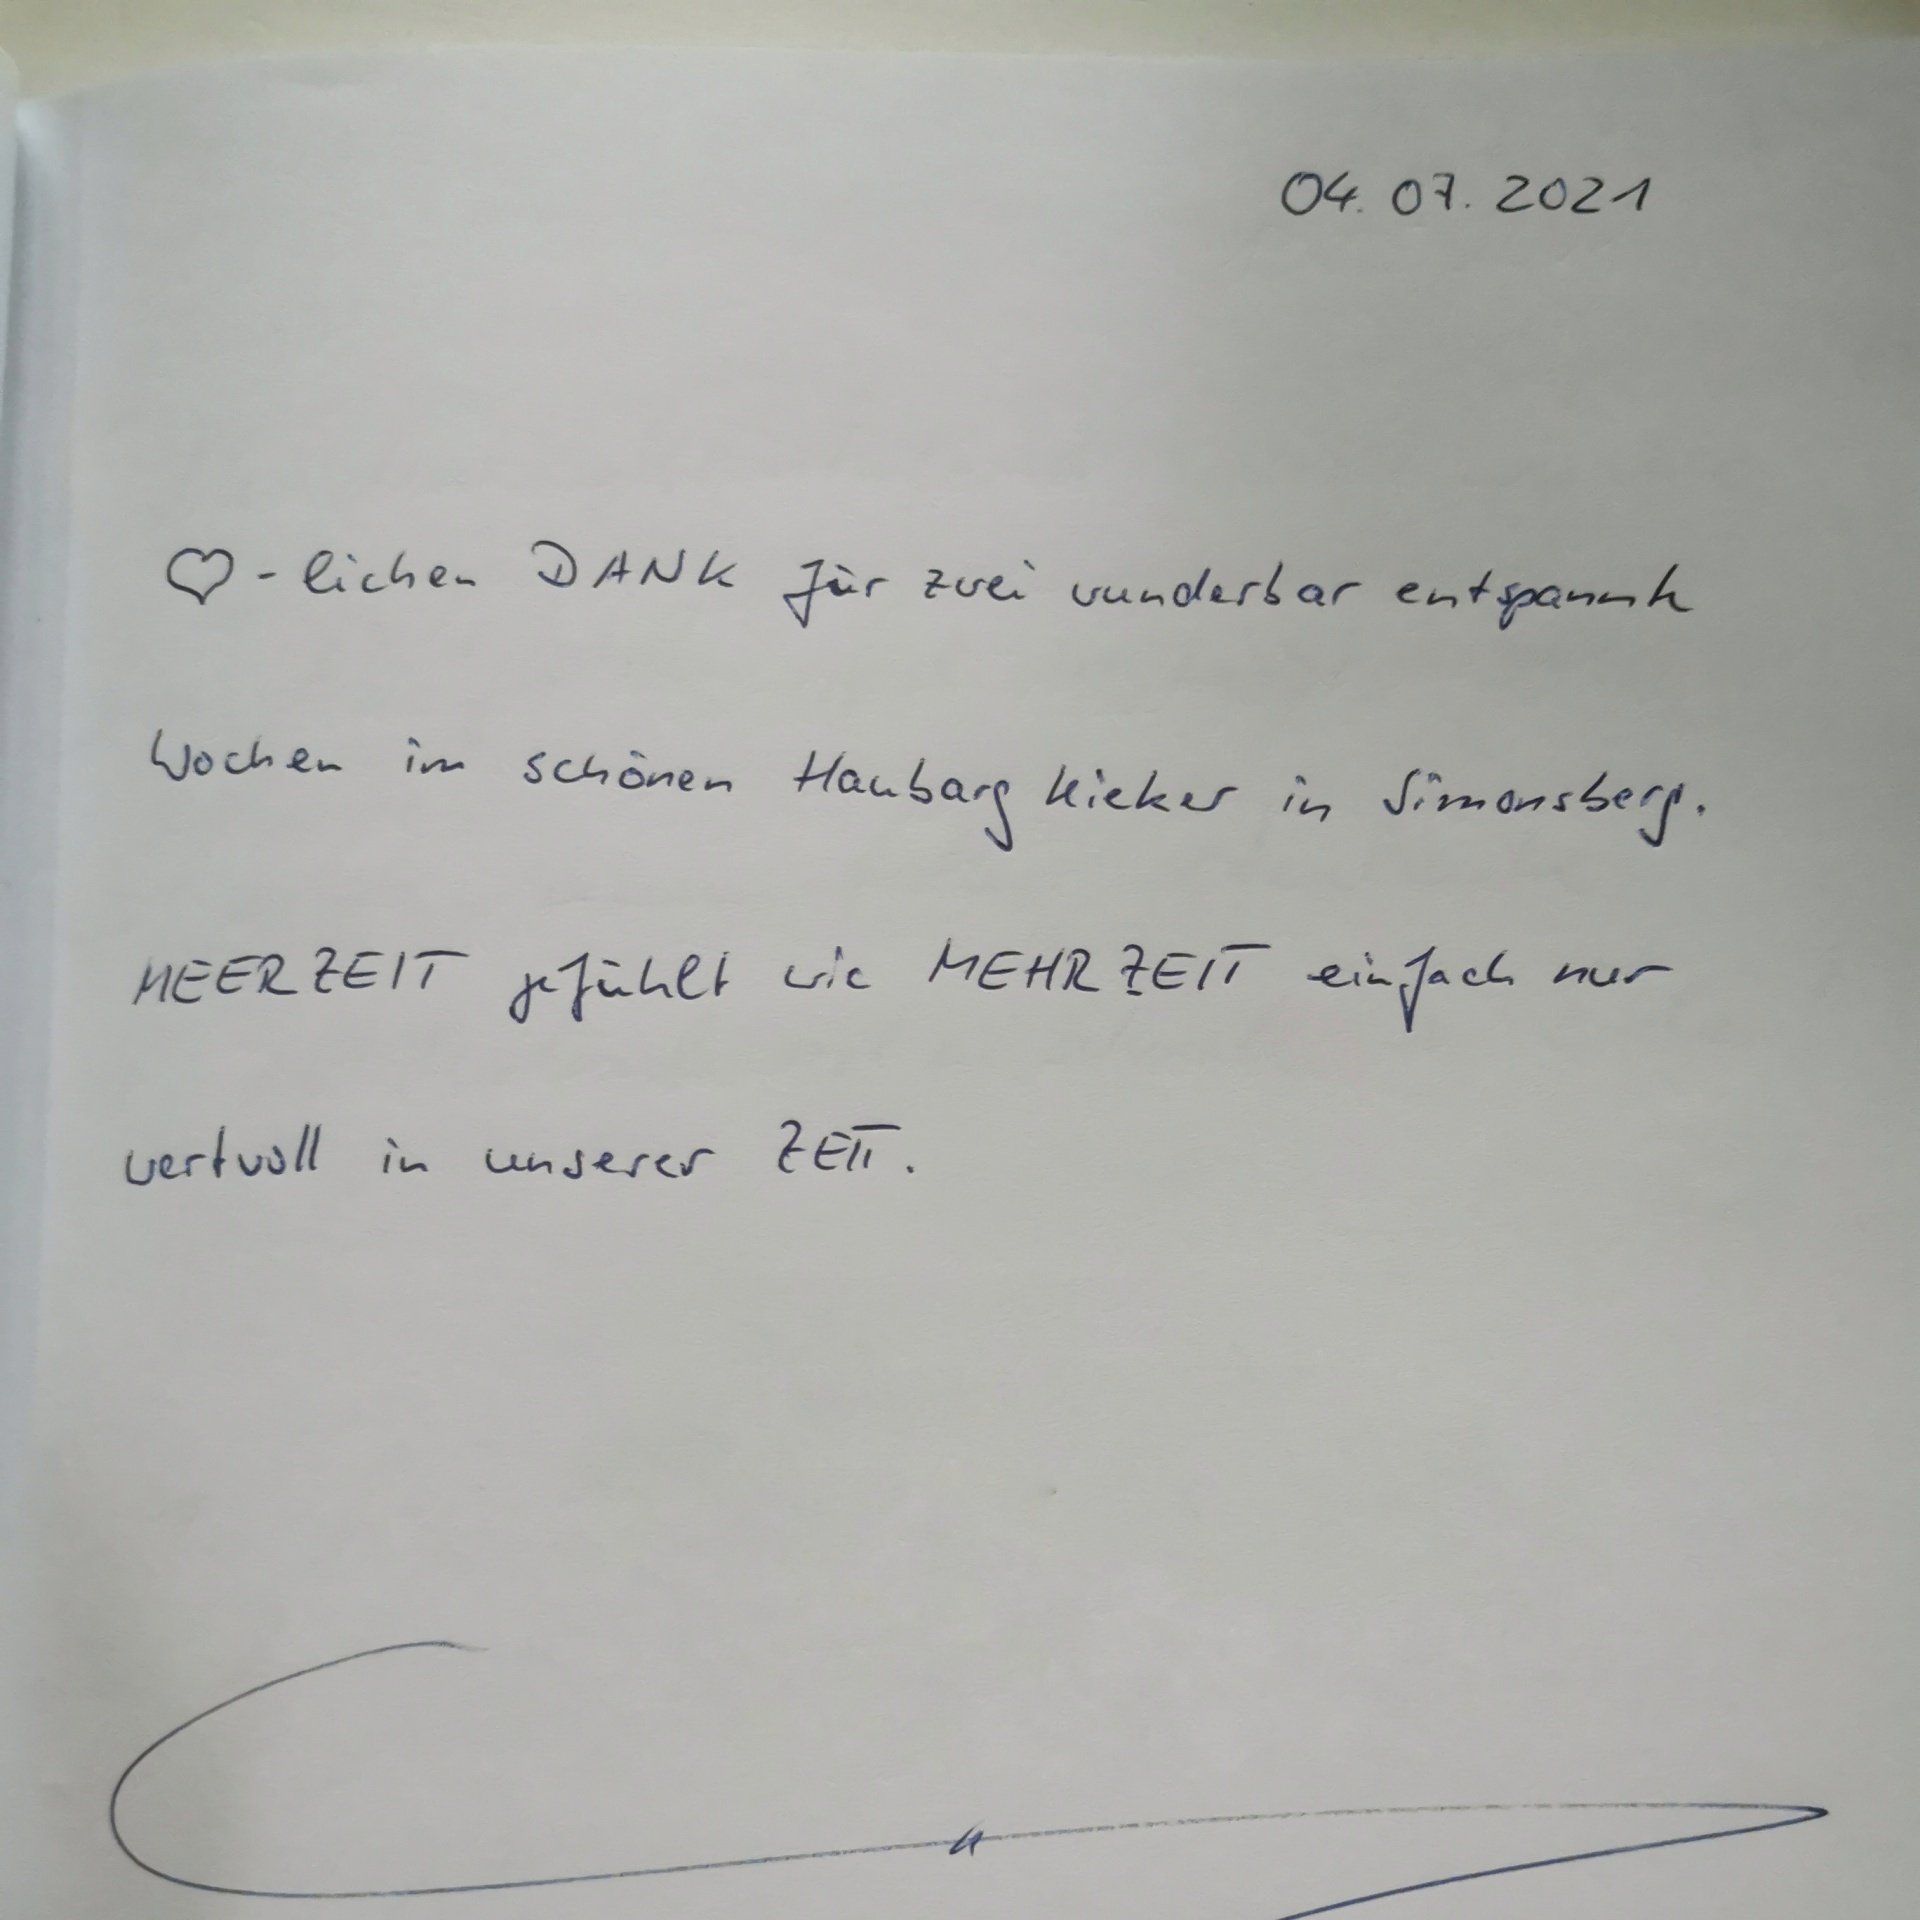 04.07.2021
♡-lichen DANK für zwei wunderbar entspannte
Wochen im schönen Haubarg Kieker in Simonsberg.
MEERZEIT gefühlt wie MEHRZEIT einfach nur
wertvoll in unserer ZEIT.